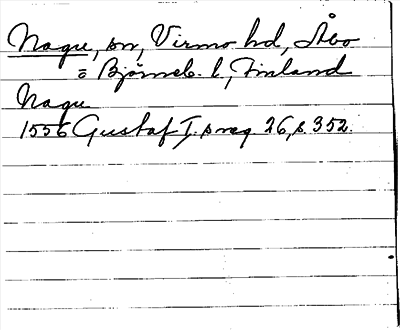 Nagu, sn, Virmo hd, Åbo
o Björneb. l, Finland
Nagu
1556 Gustaf I:s reg. 26, s. 352.